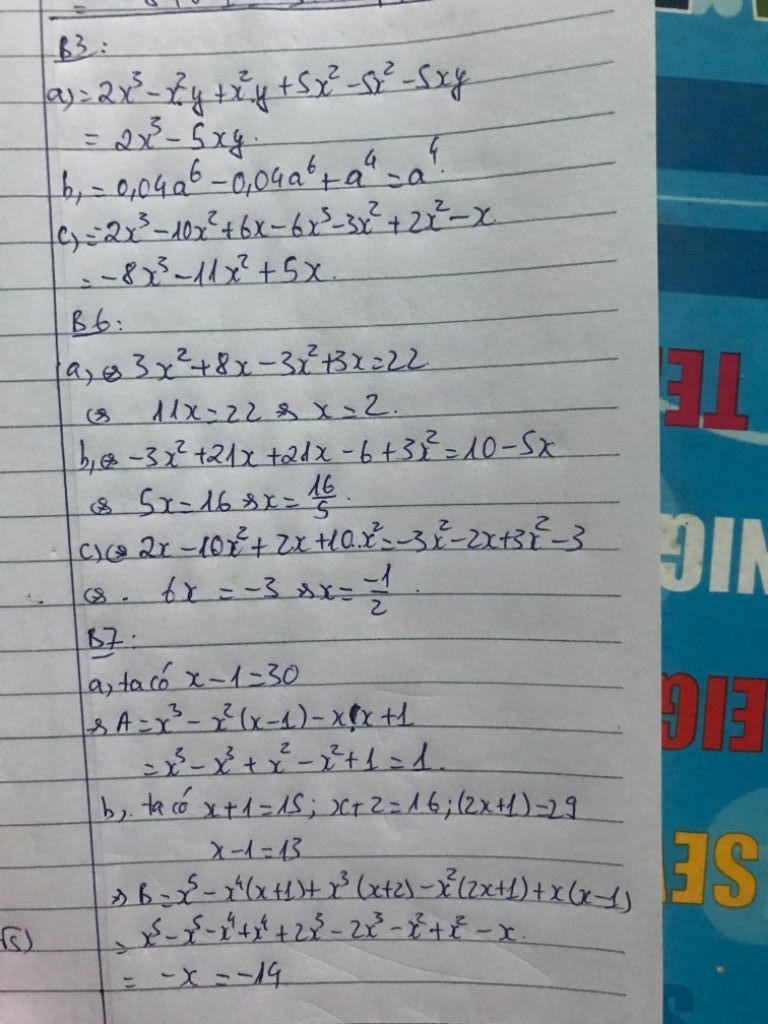 B3:
a) = 2x³ - x²y + x²y + 5x² - 5x² - 5xy
= 2x³ - 5xy.
b, = 0,04a⁶ - 0,04a⁶ + a⁴ = a⁴.
c, = -2x³ - 10x² + 6x - 6x³ - 3x² + 2x² - x
= -8x³ - 11x² + 5x.
B6:
a, ⇔ 3x² + 8x - 3x² + 3x = 22
⇔ 11x = 22 ⇔ x = 2.
b, ⇔ -3x² + 21x + 21x - 6 + 3x² = 10 - 5x
⇔ 5x = 16 ⇔ x = 16/5.
c) ⇔ 2x - 10x² + 2x + 10x² = -3x² - 2x + 3x² - 3
⇔ 6x = -3 ⇔ x = -1/2
B7:
a, ta có x - 1 = 30
⇒ A = x³ - x²(x-1) - x.x + 1
= x³ - x³ + x² - x² + 1 = 1.
b, ta có x + 1 = 15; x + 2 = 16; (2x+1) = 29
x - 1 = 13
⇒ B = x⁵ - x⁴(x+1) + x³(x+2) - x²(2x+1) + x(x-1)
= x⁵ - x⁵ - x⁴ + x⁴ + 2x³ - 2x³ - x² + x² - x.
= -x = -14
TE
NIG
EIG
SE